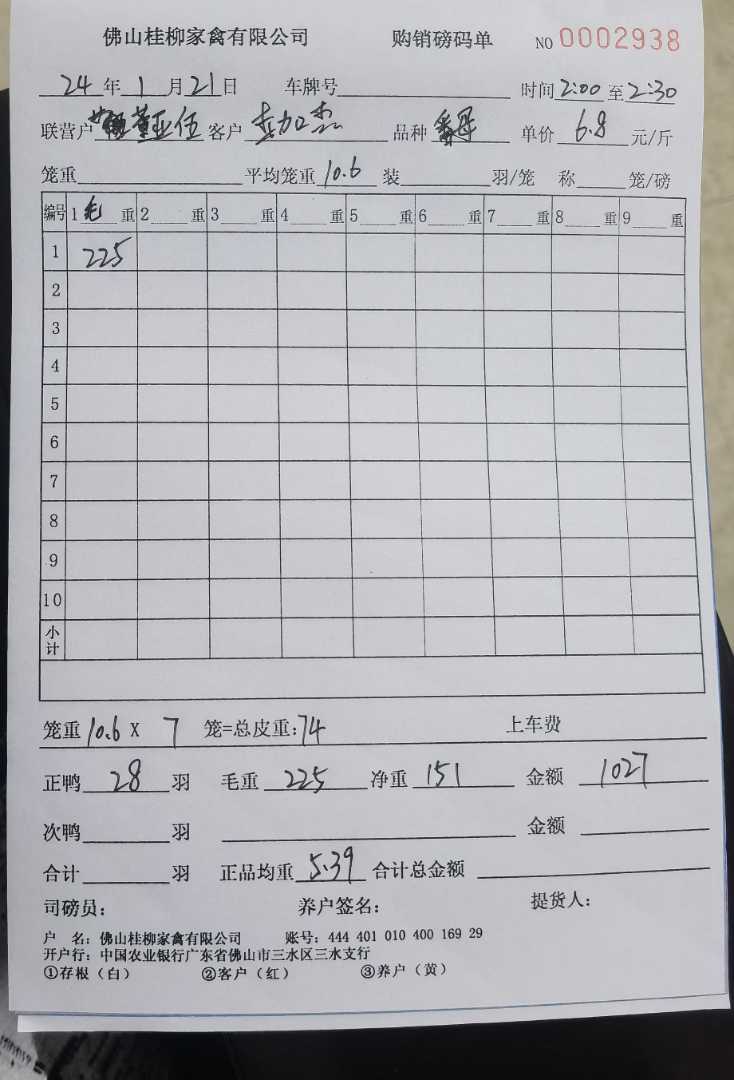 佛山桂柳家禽有限公司 购销磅码单 NO 0002938
24年1月21日 车牌号 时间2:00至2:30
联营户 董亚伍 客户 品种 番母 单价 6.8 元/斤
笼重 平均笼重 10.6 装 羽/笼 称 笼/磅
编号 1 毛 重 2 重 3 重 4 重 5 重 6 重 7 重 8 重 9 重
1 225
2
3
4
5
6
7
8
9
10
小计
笼重 10.6 X 7 笼=总皮重: 74 上车费
正鸭 28 羽 毛重 225 净重 151 金额 1027
次鸭 羽 金额
合计 羽 正品均重 5.39 合计总金额
司磅员: 养户签名: 提货人:
户 名: 佛山桂柳家禽有限公司 账号: 444 401 010 400 169 29
开户行: 中国农业银行广东省佛山市三水区三水支行
①存根（白） ②客户（红） ③养户（黄）